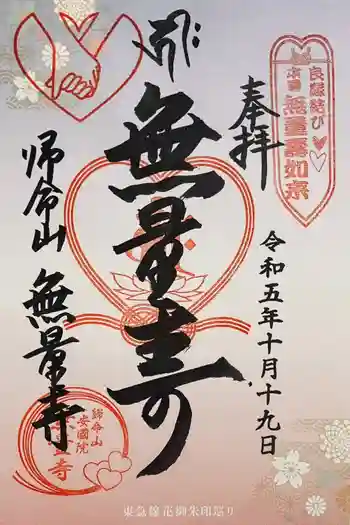 奉拝
良縁結び
本尊 無量壽如来
令和五年十月十九日
無量寿
帰命山 無量寺
帰命山
安國院
無量寺
東急線花御朱印巡り